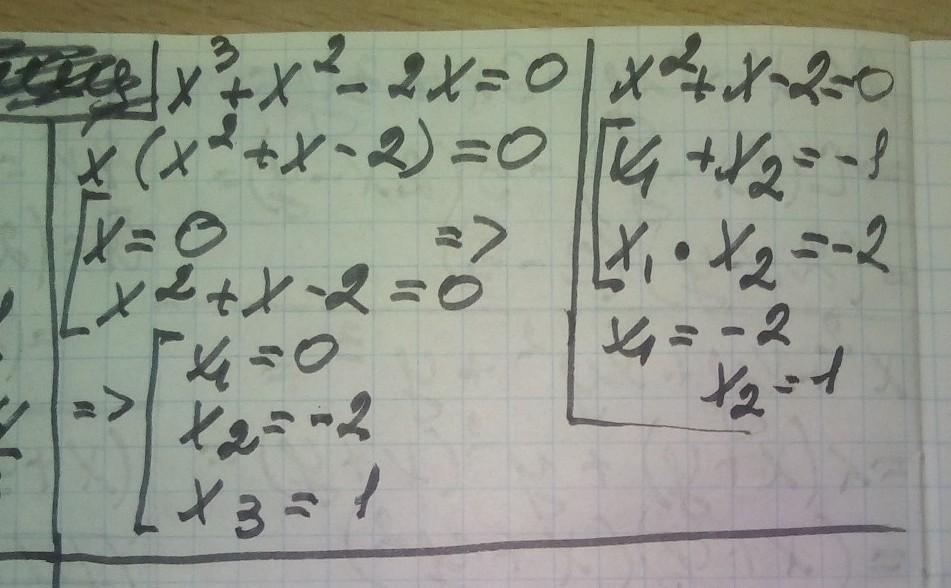 x³ + x² - 2x = 0
x (x² + x - 2) = 0
x = 0 =>
x² + x - 2 = 0
=> x₁ = 0
x₂ = -2
x₃ = 1
x² + x - 2 = 0
x₁ + x₂ = -1
x₁ • x₂ = -2
x₁ = -2
x₂ = 1